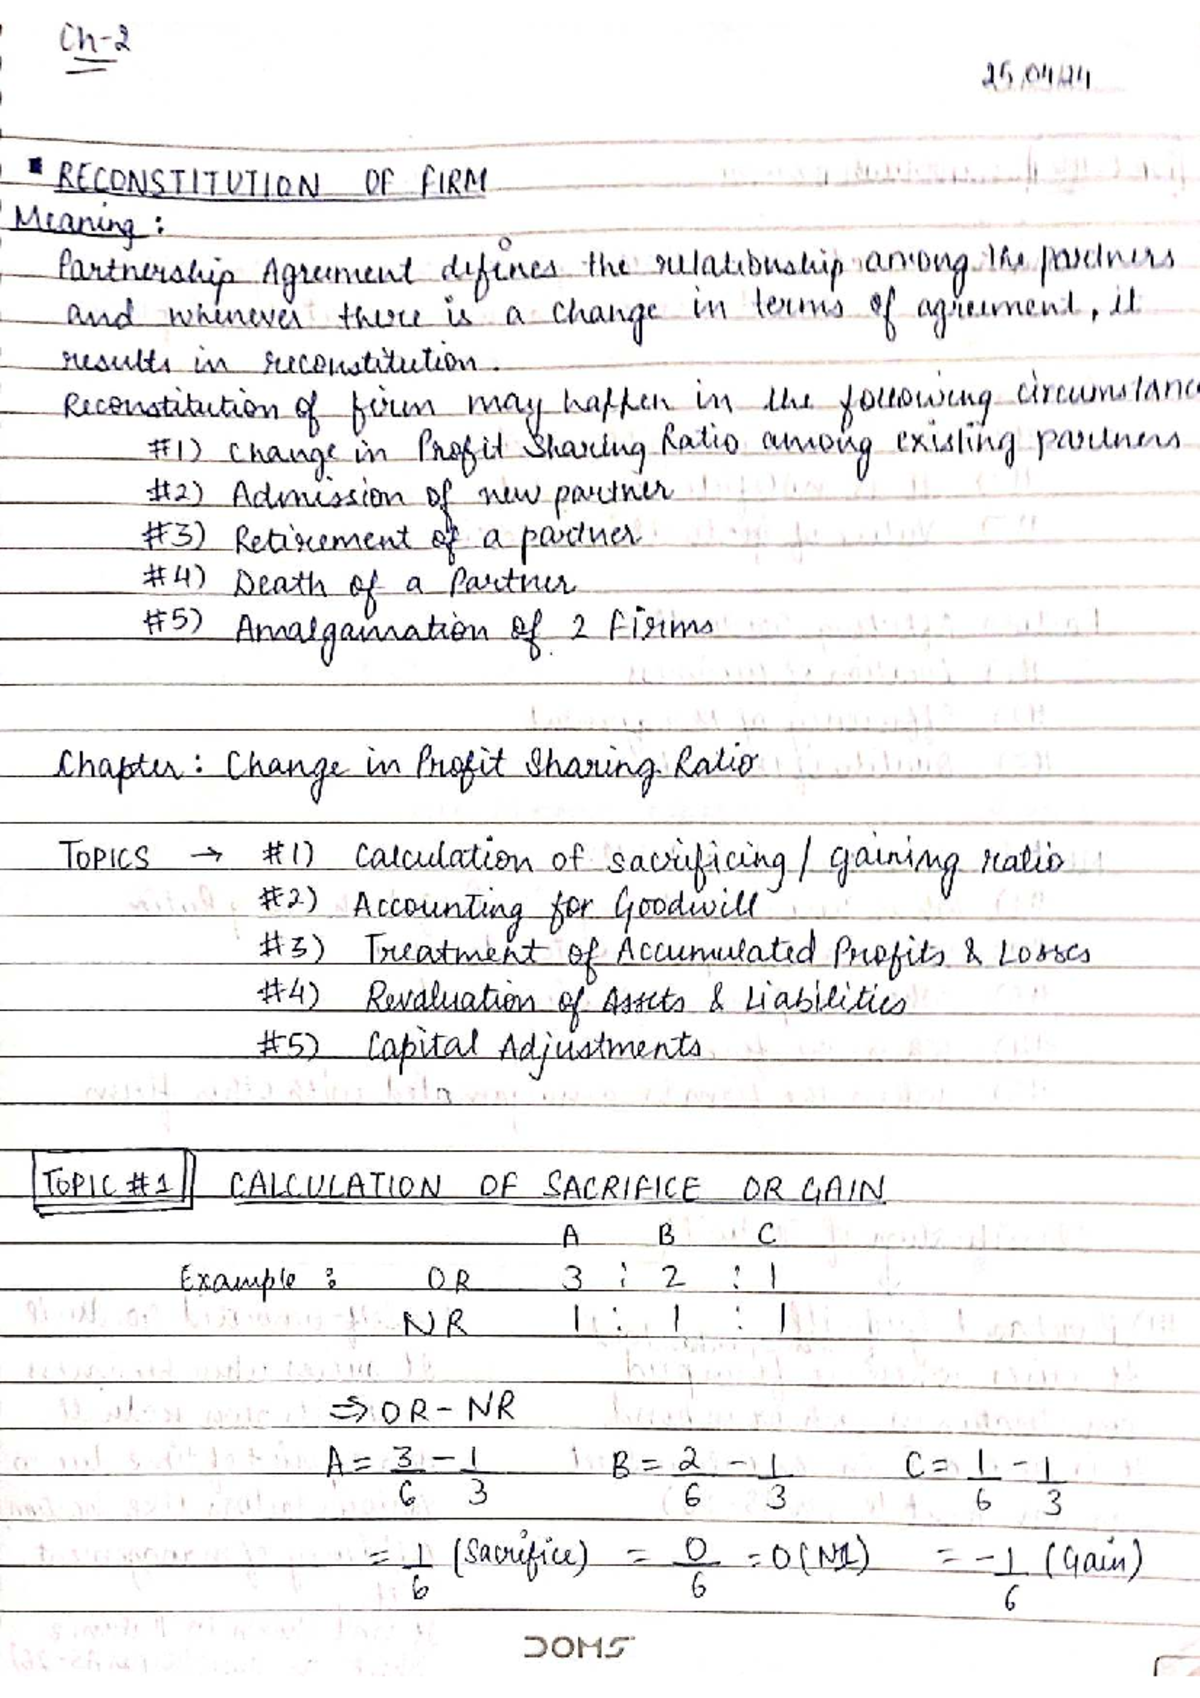 Ch-2
25/04/24
RECONSTITUTION OF FIRM
Meaning :
Partnership Agreement defines the relationship among the partners
and whenever there is a change in terms of agreement, it
results in reconstitution.
Reconstitution of firm may happen in the following circumstanc
#1) Change in Profit Sharing Ratio among existing partners
#2) Admission of new partner
#3) Retirement of a partner
#4) Death of a Partner
#5) Amalgamation of 2 Firms
Chapter : Change in Profit Sharing Ratio
TOPICS → #1) Calculation of sacrificing / gaining ratio
#2) Accounting for Goodwill
#3) Treatment of Accumulated Profits & Losses
#4) Revaluation of Assets & Liabilities
#5) Capital Adjustments
TOPIC #1 CALCULATION OF SACRIFICE OR GAIN
A B C
Example : OR 3 : 2 : 1
NR 1 : 1 : 1
⇒ OR - NR
A = 3/6 - 1/3 B = 2/6 - 1/3 C = 1/6 - 1/3
= 1/6 (Sacrifice) = 0/6 = 0 (Nil) = -1/6 (Gain)
DOMS